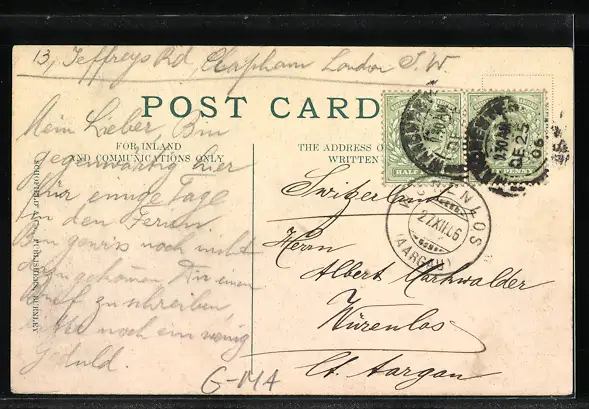 13, Jeffreys Rd, Clapham London S.W
POST CARD
FOR INLAND
AND COMMUNICATIONS ONLY
THE ADDRESS O
WRITTEN
Mein Lieber, Bin
gegenwärtig hier
für einige Tage
in den Ferien
Bin noch nicht
dazu gekommen Dir einen
Brief zu schreiben,
bitte noch ein wenig
Geduld.
G-MA
PUBLISHERS, BURNLEY
HALF
PENNY
9.30 AM
DE 25
06
WÜRENLOS
27.XII.06
(AARGAU)
Switzerland
Herrn
Albert Markwalder
Würenlos
Ct. Aargau